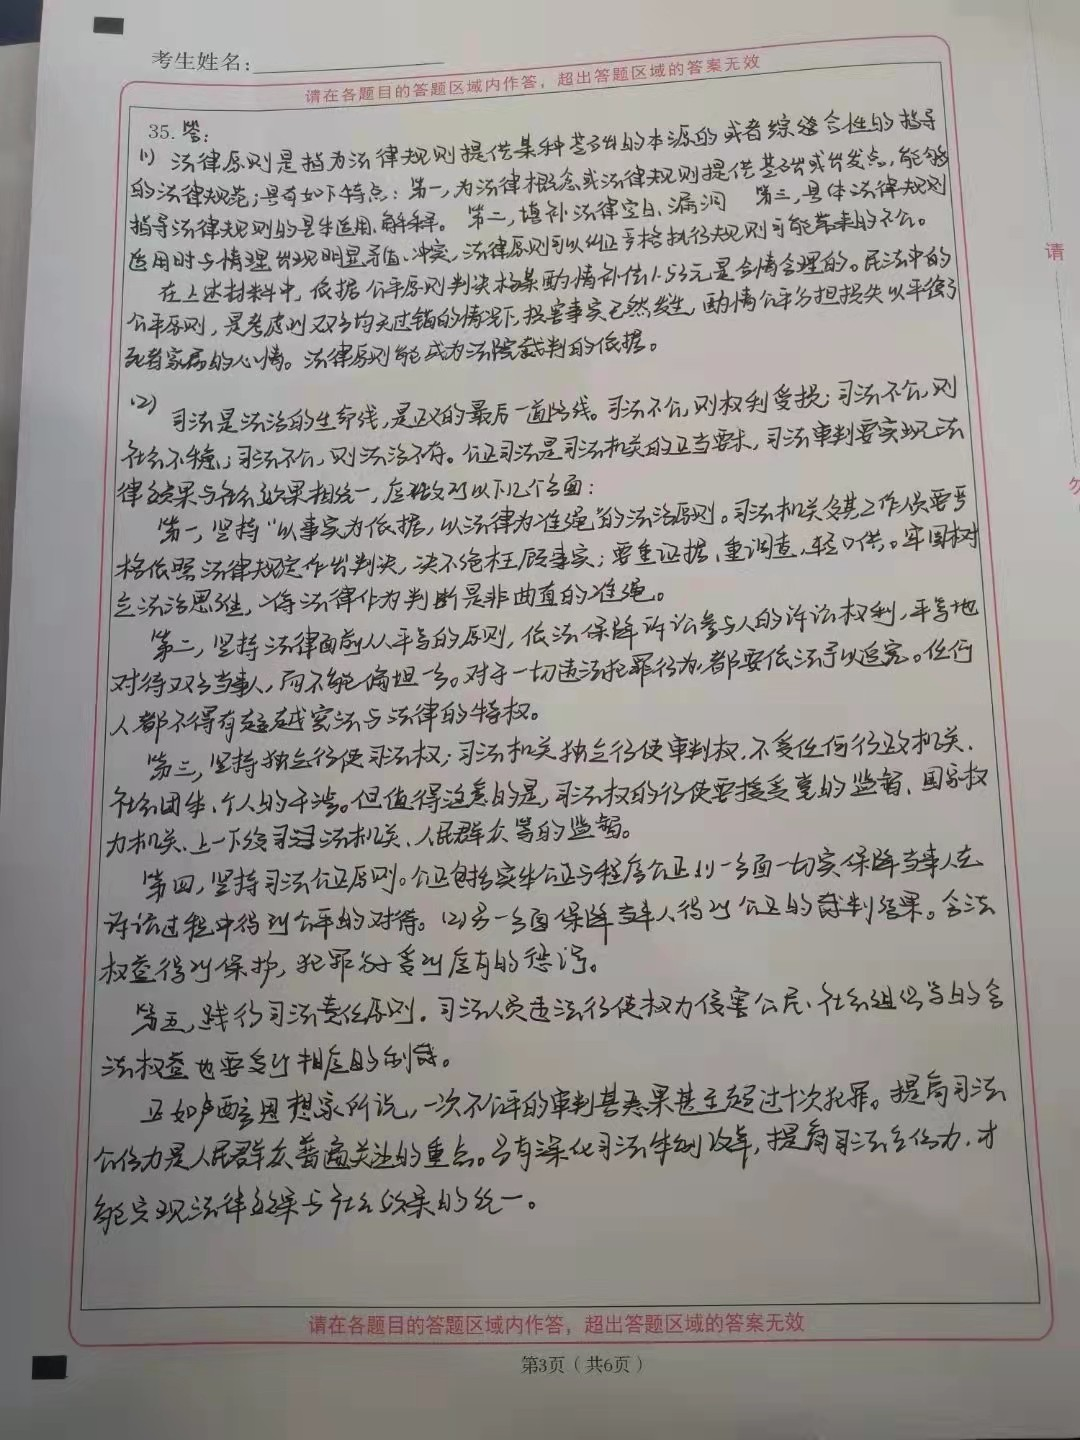 考生姓名:
请在各题目的答题区域内作答，超出答题区域的答案无效
35. 答:
(1) 法律原则是指为法律规则提供某种基础的本源的或者综合性的指导
的法律规范；具有如下特点：第一，为法律概念或法律规则提供基础或出发点，能够
指导法律规则的具体运用、解释。 第二，填补法律空白、漏洞 第三，具体法律规则
运用时与情理出现明显矛盾、冲突，法律原则可以纠正严格执行规则可能带来的不公。
在上述材料中，依据公平原则判决杨某酌情补偿1.5万元是合情合理的。民法中的
公平原则，是考虑到双方均无过错的情况下，损害事实已然发生，酌情公平分担损失以平衡了
死者家属的心情。法律原则能成为法院裁判的依据。
(2) 司法是法治的生命线，是正义的最后一道防线。司法不公，则权利受损；司法不公，则
社会不稳；司法不公，则法治不存。公正司法是司法机关的正当要求，司法审判要实现法
律效果与社会效果相统一，应做到以下几个方面：
第一，坚持“以事实为依据，以法律为准绳”的法治原则。司法机关及其工作人员要严
格依照法律规定作出判决，决不能枉顾事实；要重证据、重调查、轻口供。牢固树
立法治思维，将法律作为判断是非曲直的准绳。
第二，坚持法律面前人人平等的原则，依法保障诉讼参与人的诉讼权利，平等地
对待双方当事人，而不能偏袒一方。对于一切违法犯罪行为，都要依法予以追究。任何
人都不得有超越宪法与法律的特权。
第三，坚持独立行使司法权；司法机关独立行使审判权，不受任何行政机关、
社会团体、个人的干涉。但值得注意的是，司法权的行使要接受党的监督、国家权
力机关、上一下级司法机关、人民群众等的监督。
第四，坚持司法公正原则。公正包括实体公正与程序公正(1)一方面一切实保障当事人在
诉讼过程中得到公平的对待。(2)另一方面保障当事人得到公正的裁判结果。合法
权益得到保护，犯罪分子受到应有的惩罚。
第五，践行司法责任原则。司法人员违法行使权力侵害公民、社会组织等的合
法权益也要受到相应的制裁。
正如卢西方思想家所说，一次不公平的审判其恶果甚至超过十次犯罪。提高司法
公信力是人民群众普遍关注的重点。只有深化司法体制改革，提高司法公信力，才
能实现法律效果与社会效果的统一。
请在各题目的答题区域内作答，超出答题区域的答案无效
第3页（共6页）
请
勿